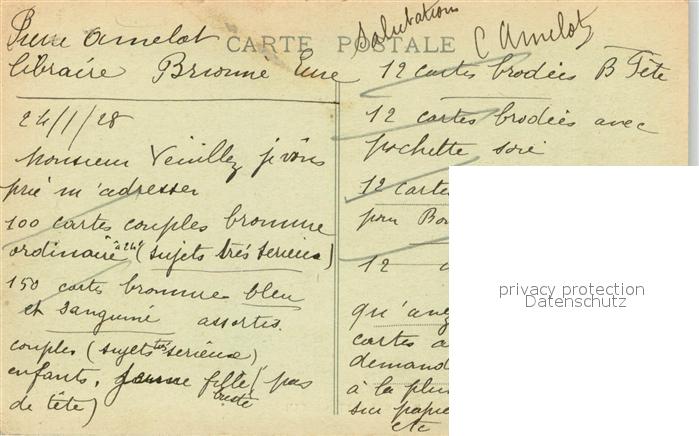 Pierre Amelot
CARTE POSTALE
libraire Brionne Eure
24/1/28
Monsieur Veuillez je vous
prie m'adresser
100 cartes couples bromure
ordinaire à 24f (sujets très serieux)
150 cartes bromure bleu
et sanguine assorties.
couples (sujets très serieux)
enfants, jeune fille (pas
buste
de tête)
Salutations
C Amelot
12 cartes brodées B Fête
12 cartes brodées avec
pochette soie
12 carte
pour
12
qu'avez
cartes a
demand
à la plu
sur papie
etc
privacy protection
Datenschutz